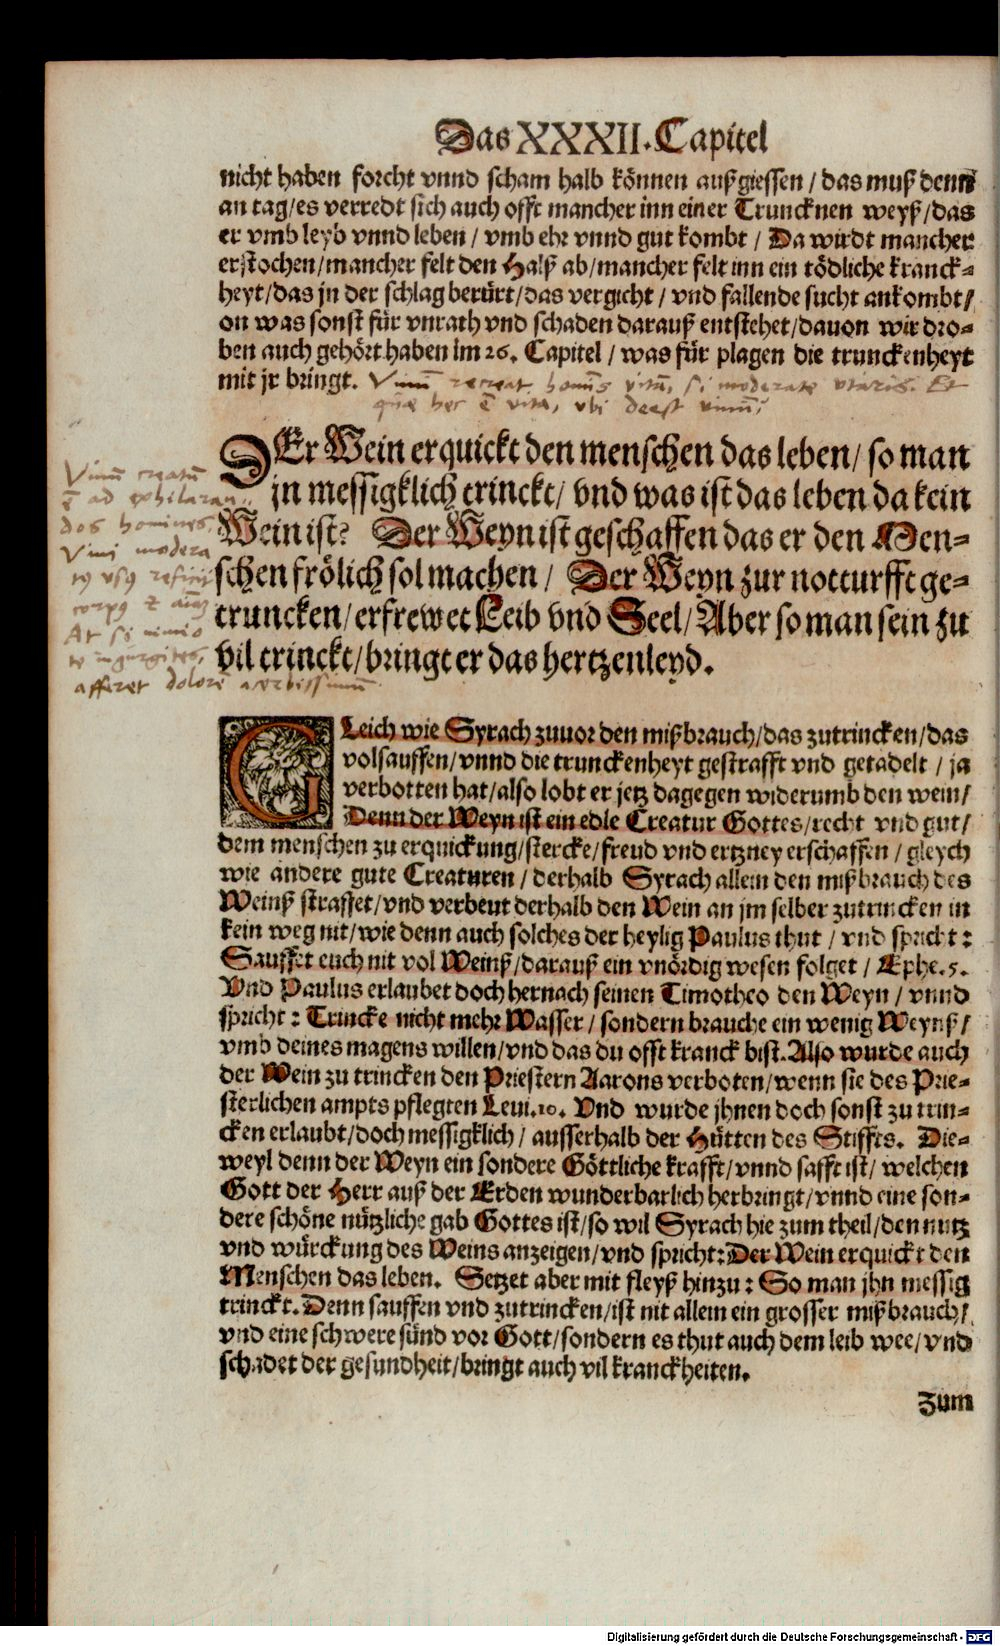 Das XXXII. Capitel
nicht haben forcht vnnd scham halb können außgiessen / das muß denn
an tag/es verredt sich auch offt mancher inn einer Truncknen weyß/das
er vmb leyb vnnd leben / vmb ehr vnnd gut kombt / Da wirdt mancher
erstochen/mancher felt den Halß ab/mancher felt inn ein tödliche kranck=
heyt/das jn der schlag berürt/das vergicht / vnd fallende sucht ankombt/
on was sonst für vnrath vnd schaden darauß entstehet/dauon wir dro=
ben auch gehört haben im 26. Capitel / was für plagen die trunckenheyt
mit jr bringt. Vinū recreat hominis vitā, si moderate vtaris. Et
quae hec ē vita, vbi deest vinū?
DEr Wein erquickt den menschen das leben/ so man
jn messigklich trinckt/ vnd was ist das leben da kein
Wein ist? Der Weyn ist geschaffen das er den Men=
schen frölich sol machen / Der Weyn zur notturfft ge=
truncken/erfrewet Leib vnd Seel/Aber so man sein zu
vil trinckt/bringt er das hertzenleyd.
Vinū creatū
ē ad exhilaran
dos homines,
Vini modera
tꝰ vsꝰ reficit
corpꝰ &
At si nimio
te ingurgites,
afferet dolorē acerbissimū
GLeich wie Syrach zuuor den mißbrauch/das zutrincken/das
volsauffen/vnnd die trunckenheyt gestrafft vnd getadelt / ja
verbotten hat/also lobt er jetz dagegen widerumb den wein/
Denn der Weyn ist ein edle Creatur Gottes/recht vnd gut/
dem menschen zu erquickung/stercke/freud vnd ertzney erschaffen / gleych
wie andere gute Creaturen / derhalb Syrach allein den mißbrauch des
Weinß straffet/vnd verbeut derhalb den Wein an jm selber zutrincken in
kein weg nit/wie denn auch solches der heylig Paulus thut / vnd spricht:
Sauffet euch nit vol Weinß/darauß ein vnördig wesen folget / Ephe. 5.
Vnd Paulus erlaubet doch hernach seinen Timotheo den Weyn / vnnd
spricht: Trincke nicht mehr Wasser / sondern brauche ein wenig Weynß/
vmb deines magens willen/vnd das du offt kranck bist. Also wurde auch
der Wein zu trincken den Priestern Aarons verboten/wenn sie des Prie=
sterlichen ampts pflegten Leui. 10. Vnd wurde jhnen doch sonst zu trin=
cken erlaubt/doch messigklich / ausserhalb der Hütten des Stiffts. Die=
weyl denn der Weyn ein sondere Göttliche krafft/vnnd safft ist/ welchen
Gott der Herr auß der Erden wunderbarlich herbringt/vnnd eine son=
dere schöne nützliche gab Gottes ist/so wil Syrach hie zum theil/den nutz
vnd würckung des Weins anzeigen/vnd spricht: Der Wein erquickt den
Menschen das leben. Setzet aber mit fleyß hinzu: So man jhn messig
trinckt. Denn sauffen vnd zutrincken/ist nit allein ein grosser mißbrauch/
vnd eine schwere sünd vor Gott/sondern es thut auch dem leib wee/vnd
schadet der gesundheit/bringt auch vil kranckheiten.
Zum
Digitalisierung gefördert durch die Deutsche Forschungsgemeinschaft - DFG